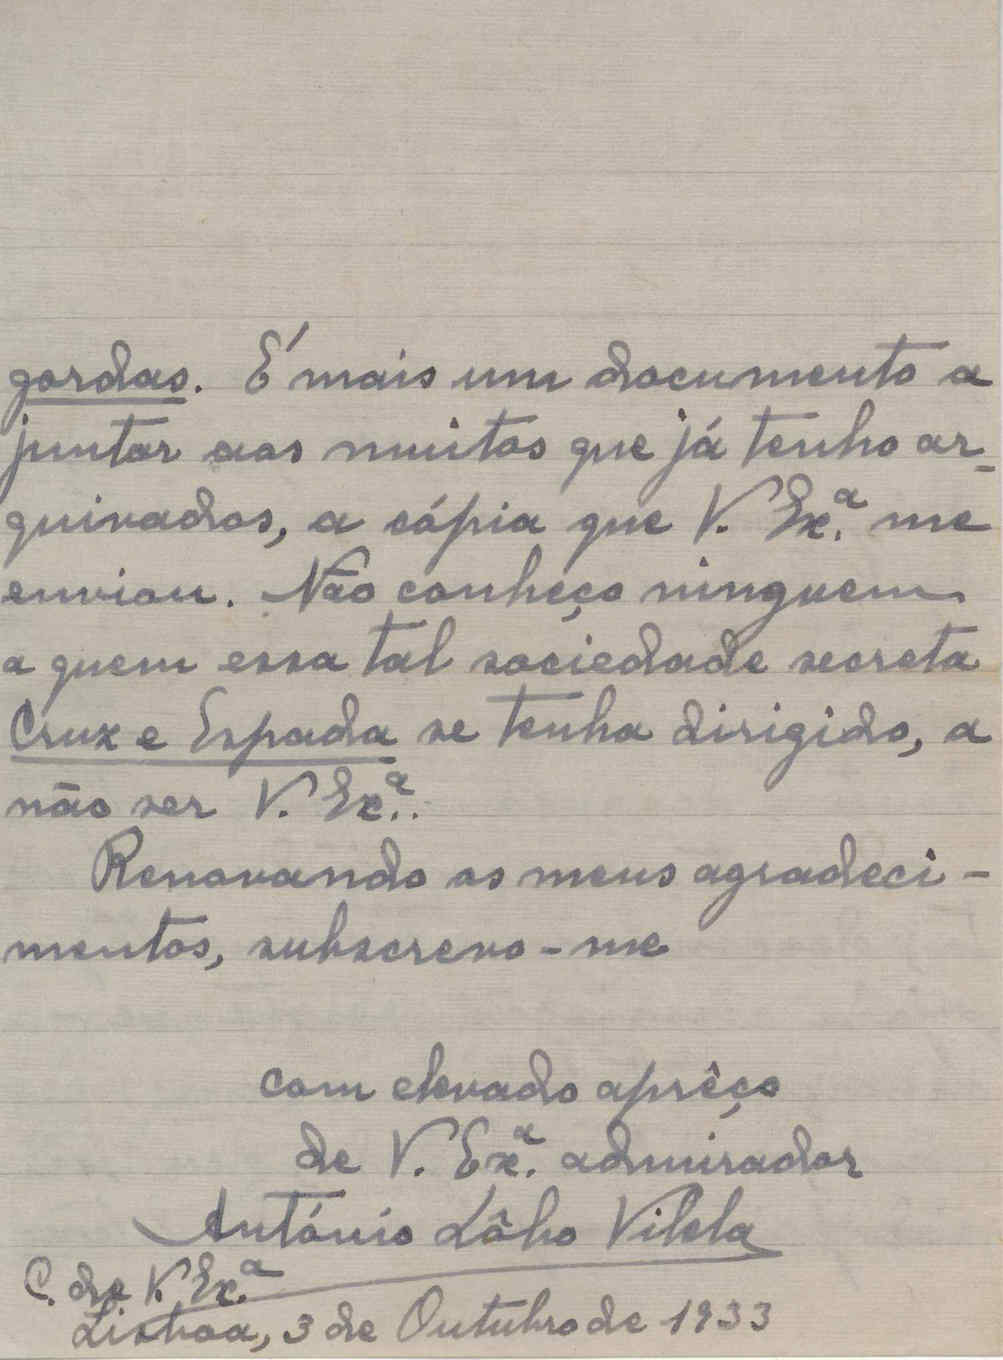 gordas. É mais um documento a
juntar aos muitos que já tenho ar-
quivados, a cópia que V. Ex.ª me
enviou. Não conheço ninguem
a quem essa tal sociedade secreta
Cruz e Espada se tenha dirigido, a
não ser V. Ex.ª.
Renovando os meus agradeci-
mentos, subscrevo-me
com elevado aprêço
de V. Ex.ª admirador
António Lôbo Vilela
C. de V. Ex.ª
Lisboa, 3 de Outubro de 1933